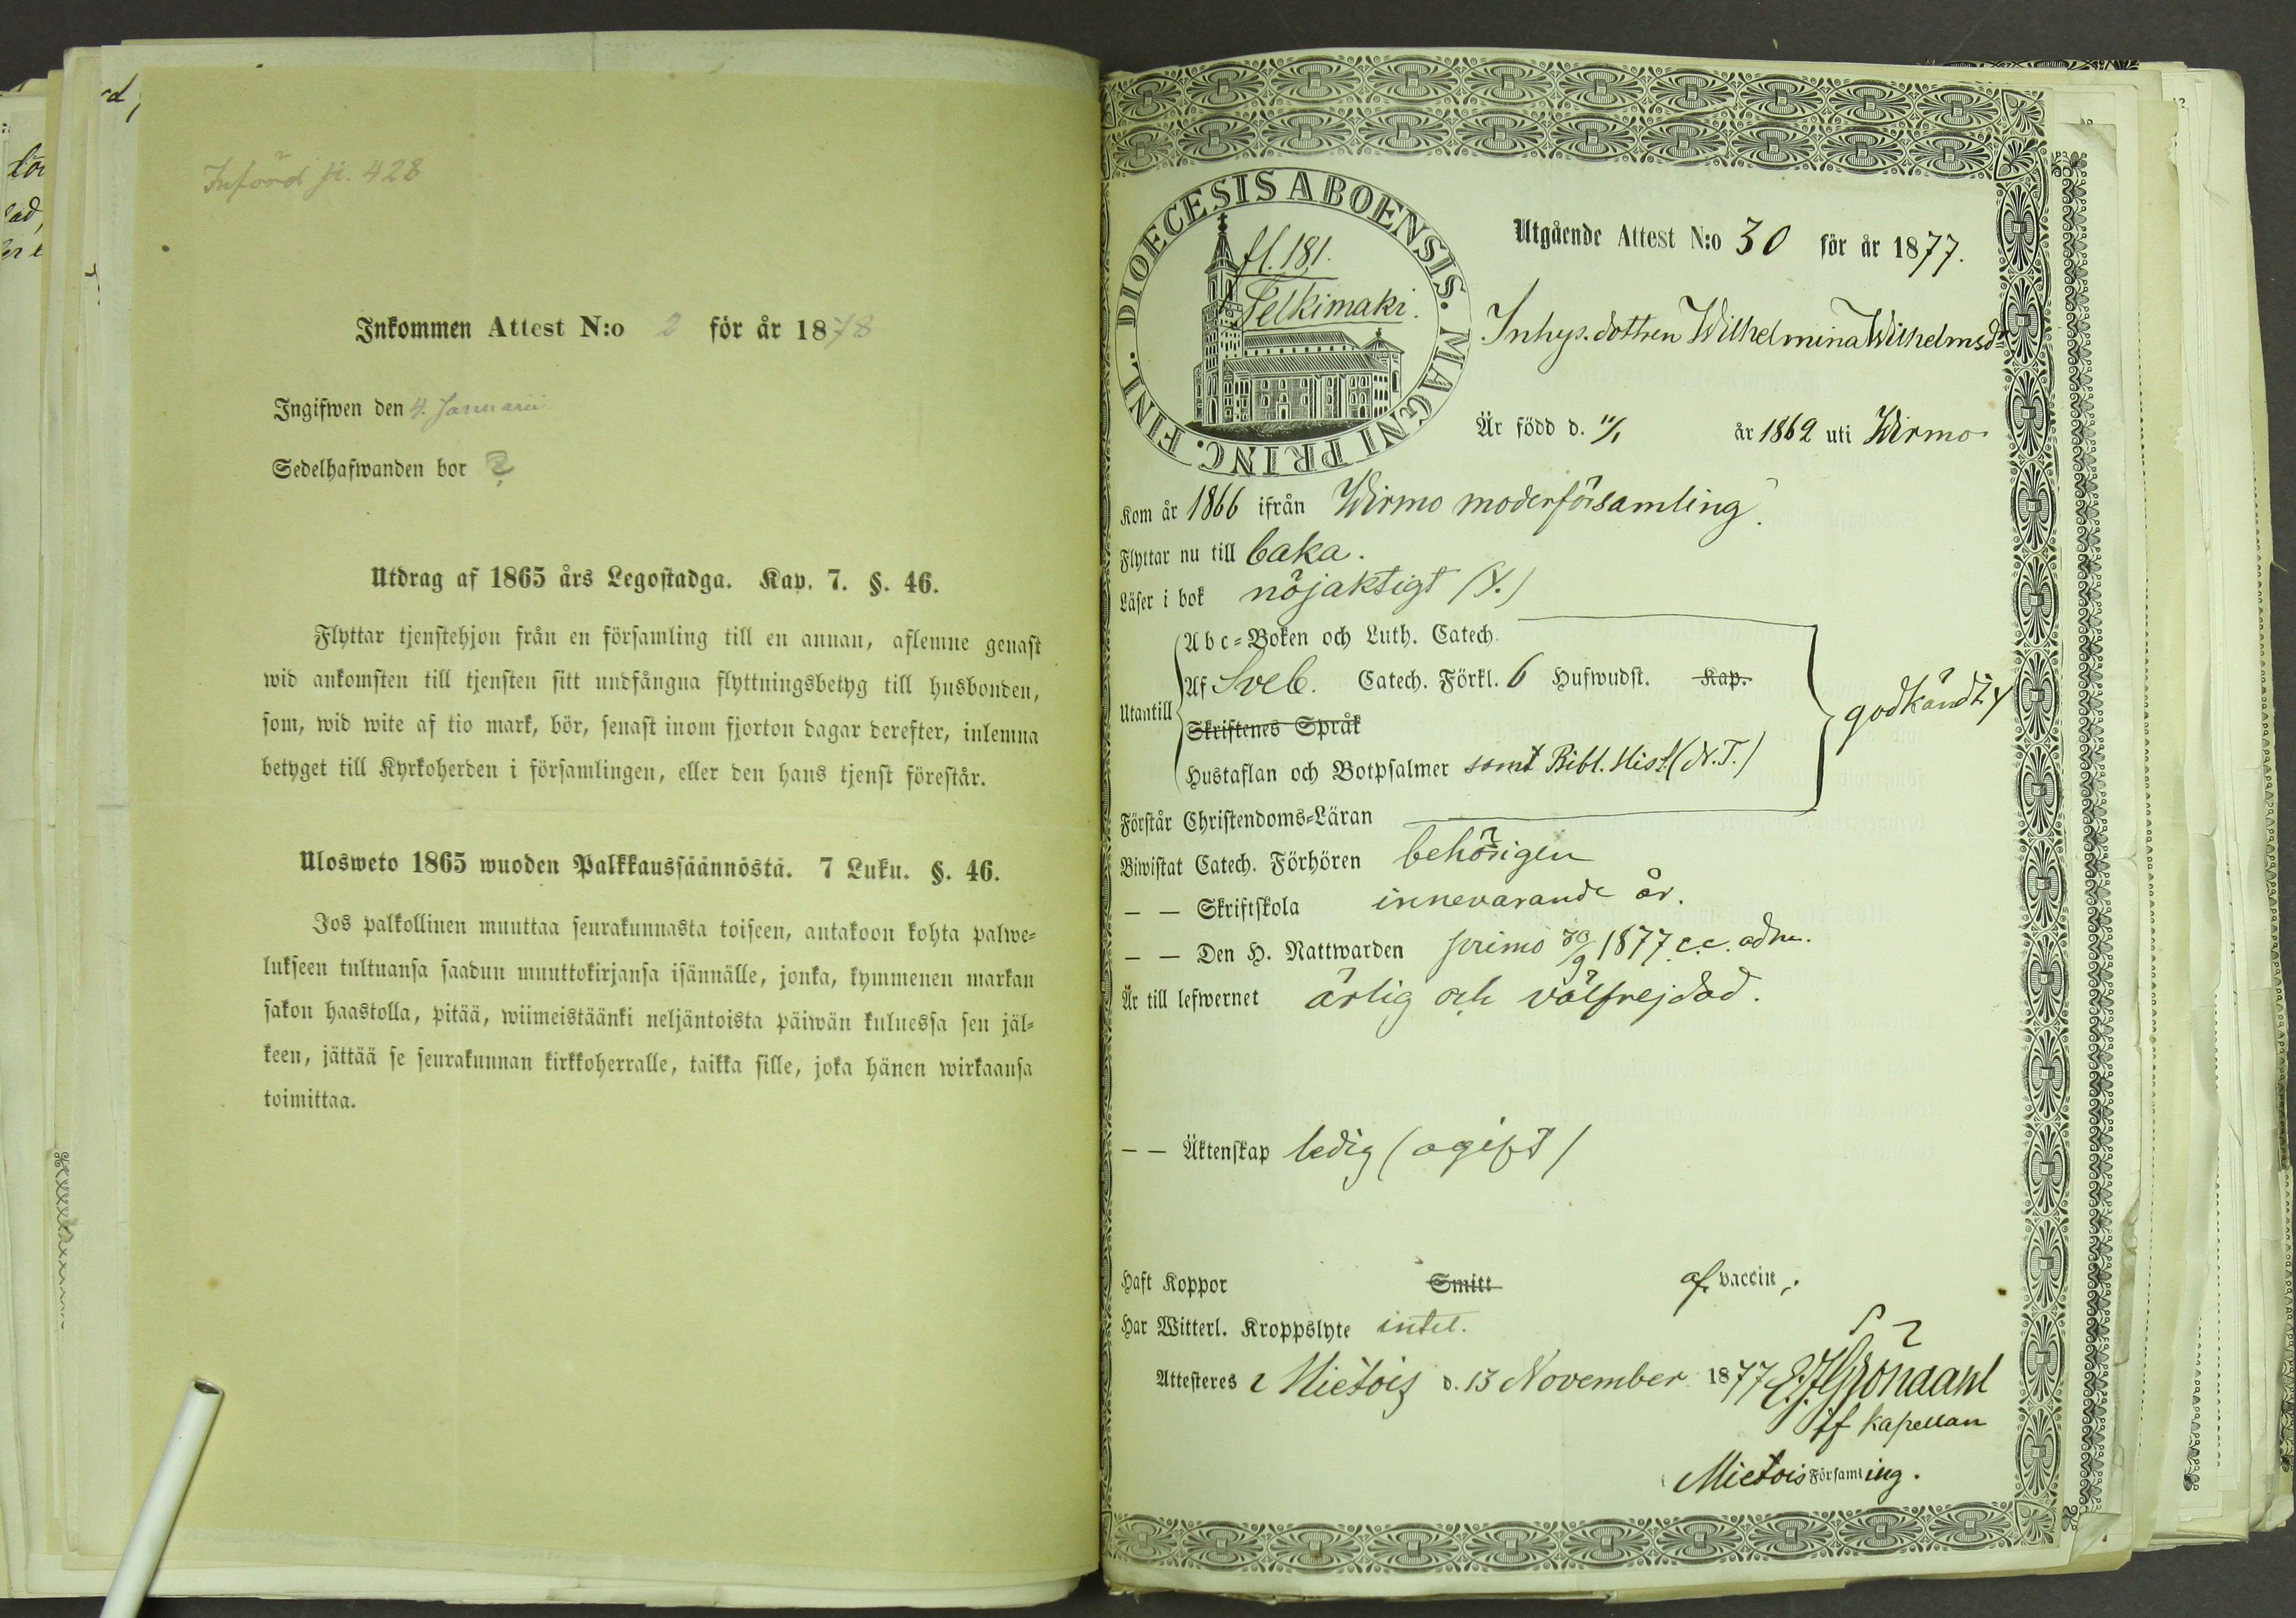 Införd fl. 428
Inkommen Attest N:o 2 för år 1878
Ingifwen den 4. Januarii
Sedelhafwanden bor ?
Utdrag af 1865 års Legostadga. Kap. 7. §. 46.
Flyttar tjenstehjon från en församling till en annan, aflemne genast
wid ankomsten till tjensten sitt undfångna flyttningsbetyg till husbonden,
som, wid wite af tio mark, bör, senast inom fjorton dagar derefter, inlemna
betyget till Kyrkoherden i församlingen, eller den hans tjenst förestår.
Ulosweto 1865 wuoden Palkkaussäännöstä. 7 Luku. §. 46.
Jos palkollinen muuttaa seurakunnasta toiseen, antakoon kohta palwe-
lukseen tultuansa saadun muuttokirjansa isännälle, jonka, kymmenen markan
sakon haastolla, pitää, wiimeistäänki neljäntoista päiwän kuluessa sen jäl-
keen, jättää se seurakunnan kirkkoherralle, taikka sille, joka hänen wirkaansa
toimittaa.
DIOECESIS ABOENSIS. MAGNI PRINC. FINL.
fl. 181.
Pelkimäki.
Utgående Attest N:o 30 för år 1877.
Inhys. dottren Wilhelmina Wilhelmsdr
Är född d. 11/1 år 1862 uti Wirmo
Kom år 1866 ifrån Wirmo moderförsamling.
Flyttar nu till baka.
Läser i bok nöjaktigt (Y.)
Utantill
Abc-Boken och Luth. Catech.
Af Sveb. Catech. Förkl. 6 Hufwudst. Kap.
Skriftenes Språk
Hustaflan och Botpsalmer samt Bibl. Hist. (N.T.)
godkändt Y
Förstår Christendoms-Läran
Biwistat Catech. Förhören behörigen
— — Skriftskola innevarande år.
— — Den H. Nattwarden primo 30/9 1877 c.c. adm.
Är till lefwernet ärlig och välfrejdad.
— — Äktenskap ledig (ogift)
Haft Koppor Smitt af vaccin.
Har Witterl. Kroppslyte intet.
Attesteres i Mietois d. 13 November 1877
Gröndahl
tf kapellan
i Mietois Församling.